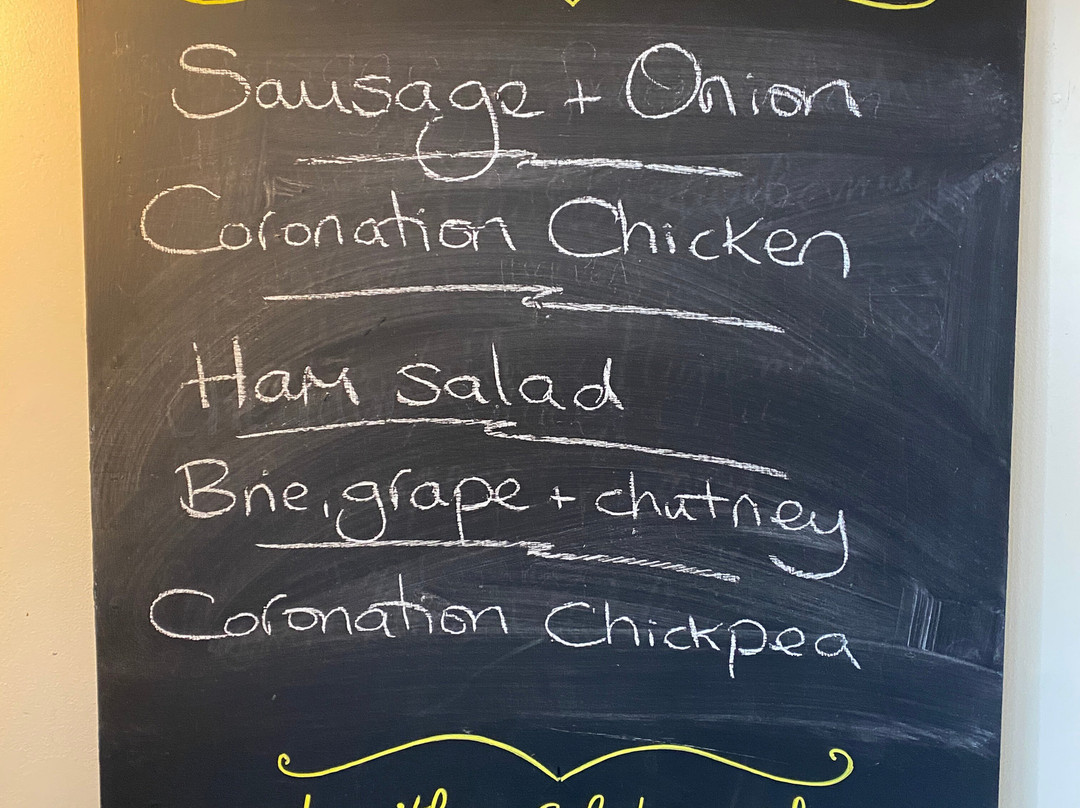 Sausage + Onion
Coronation Chicken
Ham salad
Brie, grape + chutney
Coronation Chickpea